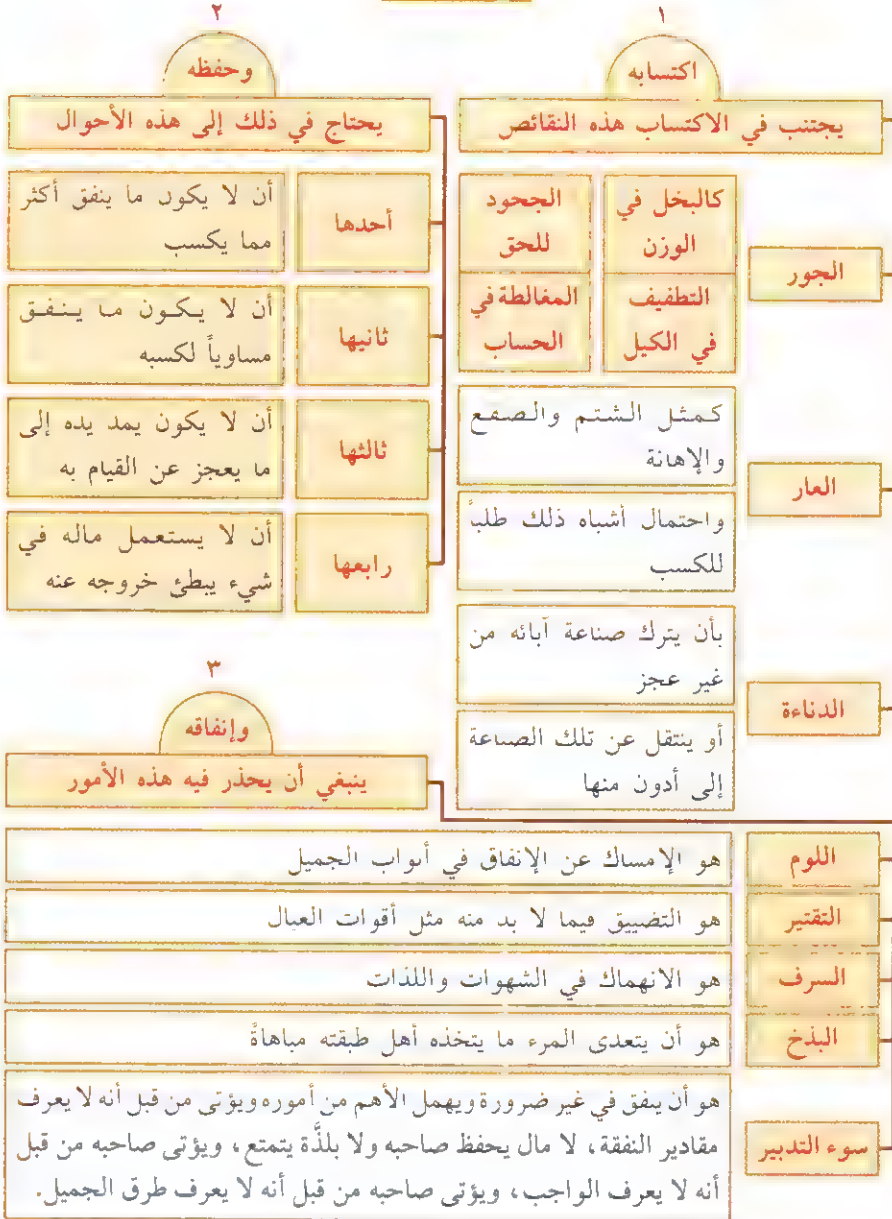 ١
اكتسابه
يجتنب في الاكتساب هذه النقائص
الجور
كالبخل في
الوزن
الجحود
للحق
التطفيف
في الكيل
المغالطة في
الحساب
العار
كمثل الشتم والصفع
والإهانة
واحتمال أشباه ذلك طلباً
للكسب
الدناءة
بأن يترك صناعة آبائه من
غير عجز
أو ينتقل عن تلك الصناعة
إلى أدون منها
٢
وحفظه
يحتاج في ذلك إلى هذه الأحوال
أحدها
أن لا يكون ما ينفق أكثر
مما يكسب
ثانيها
أن لا يكون ما ينفق
مساوياً لكسبه
ثالثها
أن لا يكون يمد يده إلى
ما يعجز عن القيام به
رابعها
أن لا يستعمل ماله في
شيء يبطئ خروجه عنه
٣
وإنفاقه
ينبغي أن يحذر فيه هذه الأمور
اللوم
هو الإمساك عن الإنفاق في أبواب الجميل
التقتير
هو التضييق فيما لا بد منه مثل أقوات العيال
السرف
هو الانهماك في الشهوات واللذات
البذخ
هو أن يتعدى المرء ما يتخذه أهل طبقته مباهاةً
سوء التدبير
هو أن ينفق في غير ضرورة ويهمل الأهم من أموره ويؤتى من قبل أنه لا يعرف
مقادير النفقة، لا مال يحفظ صاحبه ولا بلذَّة يتمتع، ويؤتى صاحبه من قبل
أنه لا يعرف الواجب، ويؤتى صاحبه من قبل أنه لا يعرف طرق الجميل.